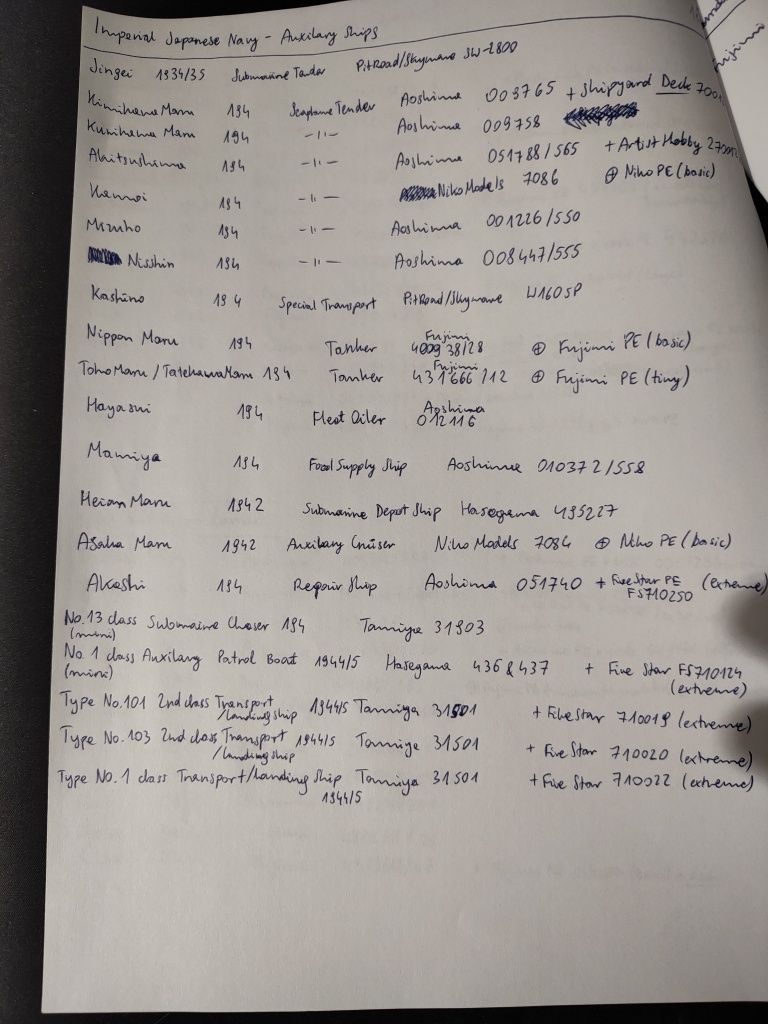 Imperial Japanese Navy - Auxilary Ships
Jingei 1934/35 Submarine Tender PitRoad/Skywave SW-2800
Kimikawa Maru 194 Seaplane Tender Aoshima 009765 + Shipyard Deck 7001
Kunikawa Maru 194 -11- Aoshima 009758
Akitsushima 194 -11- Aoshima 051788/565 + Artist Hobby
Kamoi 194 -11- Niko Models 7086 ⊕ Niko PE (basic)
Mizuho 194 -11- Aoshima 001226/550
Nisshin 194 -11- Aoshima 008447/555
Kashino 194 Special Transport PitRoad/Skywave W160SP
Nippon Maru 194 Tanker Fujimi 400938/28 ⊕ Fujimi PE (basic)
Toho Maru / Tatekawa Maru 194 Tanker Fujimi 431666/12 ⊕ Fujimi PE (tiny)
Hayasui 194 Fleet Oiler Aoshima 012116
Mamiya 194 Food Supply Ship Aoshima 010372/558
Heian Maru 1942 Submarine Depot Ship Hasegawa 495227
Asaka Maru 1942 Auxilary Cruiser Niko Models 7084 ⊕ Niko PE (basic)
Akashi 194 Repair Ship Aoshima 051740 + Five Star PE (extreme)
FS710250
No.13 class Submarine Chaser 194 Tamiya 31903
(mini)
No.1 class Auxilary Patrol Boat 1944/5 Hasegawa 436 & 437 + Five Star FS710124
(mini) (extreme)
Type No.101 2nd class Transport 1944/5 Tamiya 31501 + Five Star 710019 (extreme)
/landing ship
Type No.103 2nd class Transport 1944/5 Tamiya 31501 + Five Star 710020 (extreme)
/landing ship
Type No.1 class Transport/Landing Ship Tamiya 31501 + Five Star 710022 (extreme)
1944/5
Fujimi